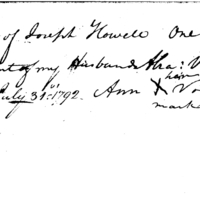 of Joseph Howell One
of my Husband
July 31st 1792. Ann X
mark